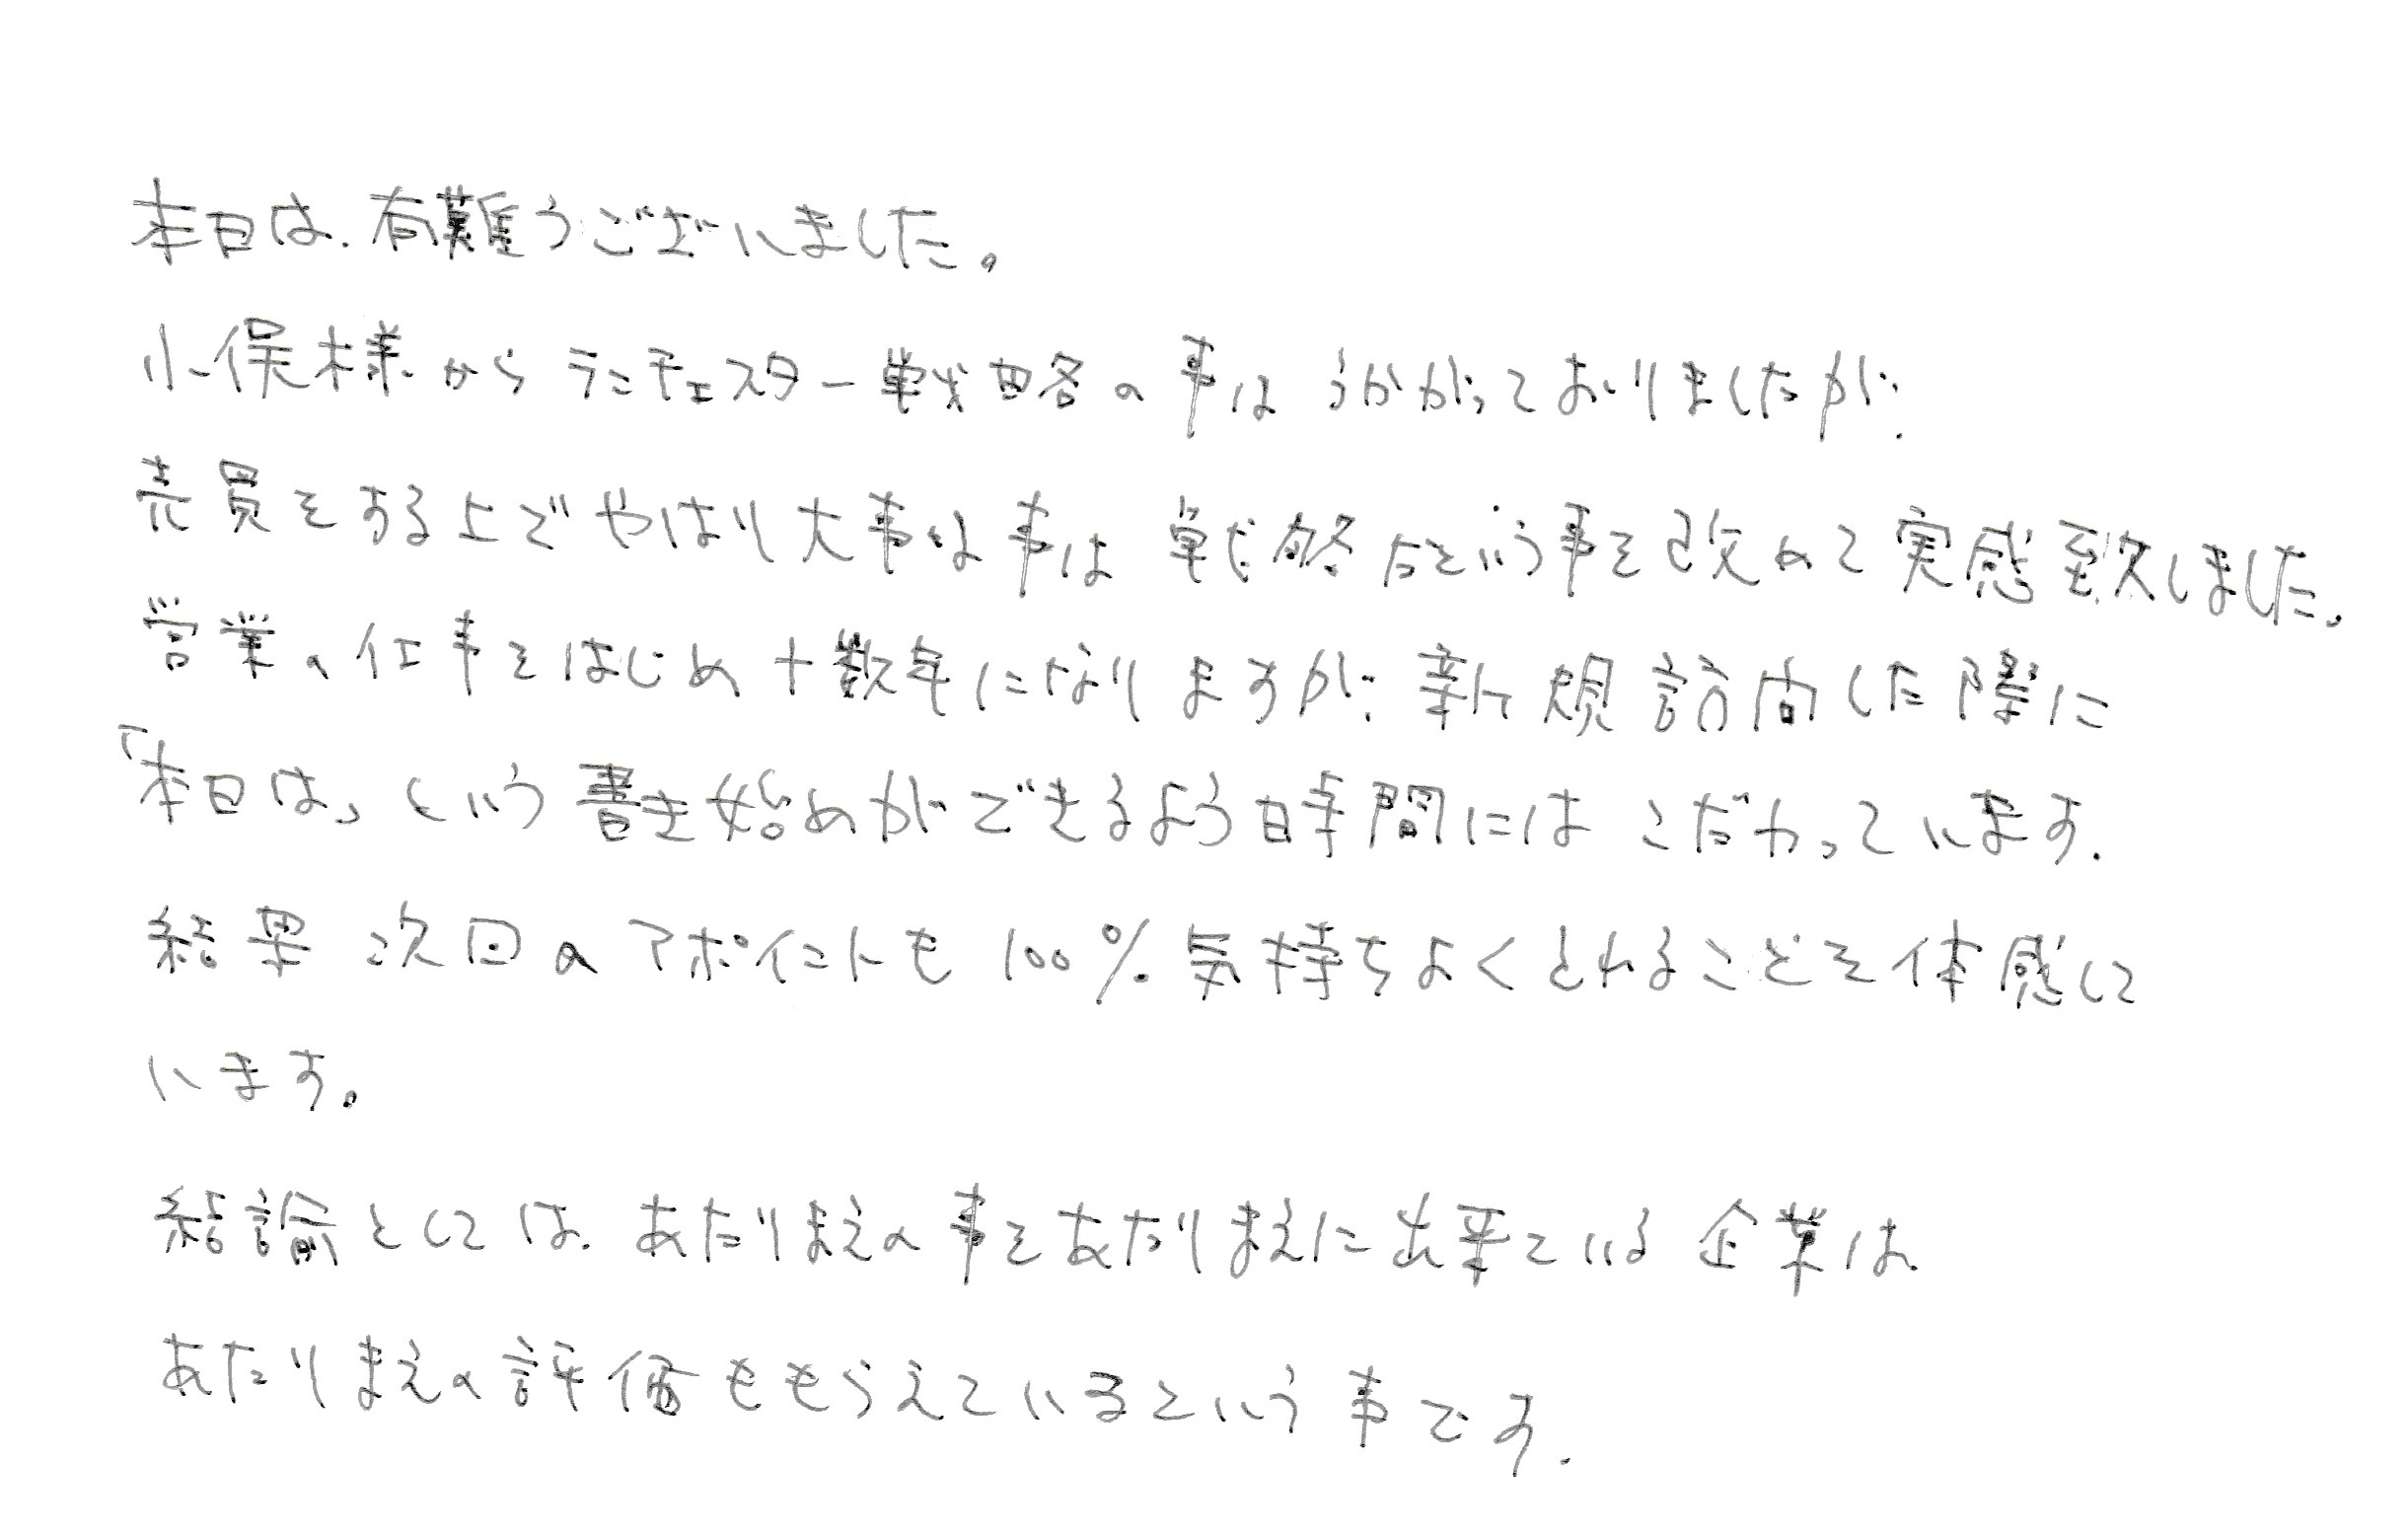 本日は、有難うございました。
小保様からランチェスター戦略の事はうかがっておりましたが、
売買をする上でやはり大事な事は戦略だという事を改めて実感致しました。
営業の仕事をはじめ十数年になりますが、新規訪問した際に
「本日は」という書き始めができるよう時間にはこだわっています。
結果次回のアポイントも100%気持ちよくとれることを体感して
います。
結論としては、あたりまえの事をあたりまえに出来ている企業は、
あたりまえの評価をもらえているという事です。